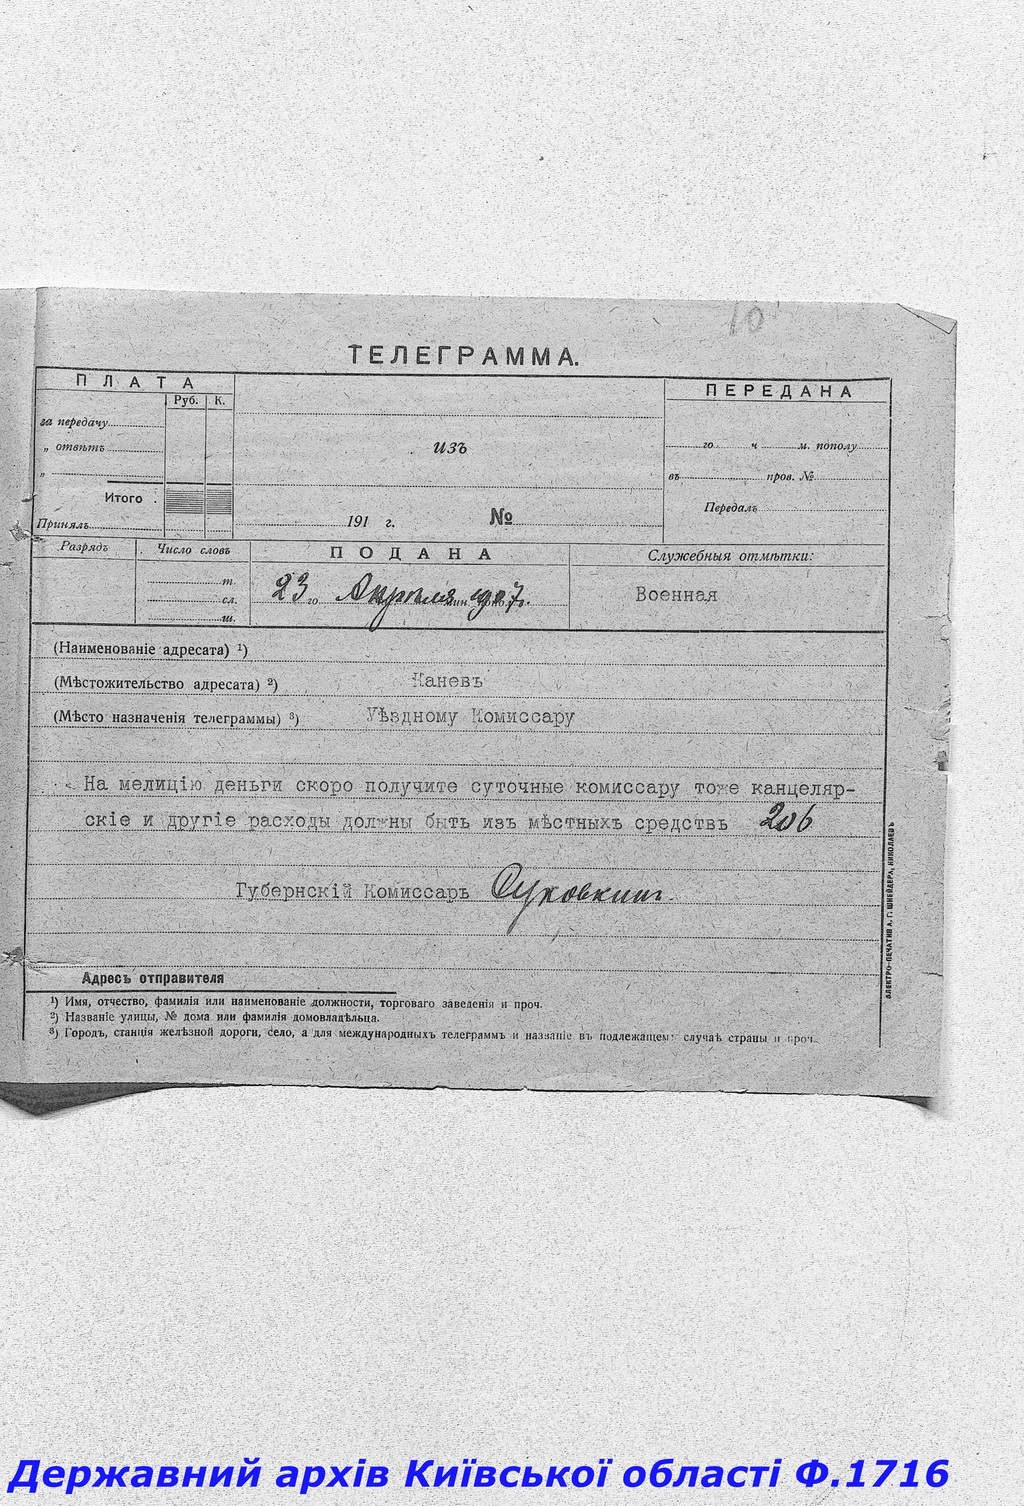 10
ТЕЛЕГРАММА.
ПЛАТА
Руб. К.
за передачу
„ отвѣтъ
„
Итого
Принялъ
изъ
191 г. №
ПЕРЕДАНА
го ч м. пополу
въ пров. №
Передалъ
Разрядъ
Число словъ
т.
сл.
ш.
ПОДАНА
23 го Апреля
Служебныя отмѣтки:
Военная
(Наименованіе адресата) ¹)
(Мѣстожительство адресата) ²) Каневъ
(Мѣсто назначенія телеграммы) ³) Уѣздному Комиссару
На мелицію деньги скоро получите суточные комиссару тоже канцеляр-
скіе и другіе расходы должны быть изъ мѣстныхъ средствъ 206
Губернскій Комиссаръ Суковкин.
Адресъ отправителя
¹) Имя, отчество, фамилія или наименованіе должности, торговаго заведенія и проч.
²) Названіе улицы, № дома или фамилія домовладѣльца.
³) Городъ, станція желѣзной дороги, село, а для международныхъ телеграммъ и названіе въ подлежащемъ случаѣ страны и проч.
ЭЛЕКТРО-ПЕЧАТНЯ А. Г. ШНЕЙДЕРА, НИКОЛАЕВЪ
Державний архів Київської області Ф.1716